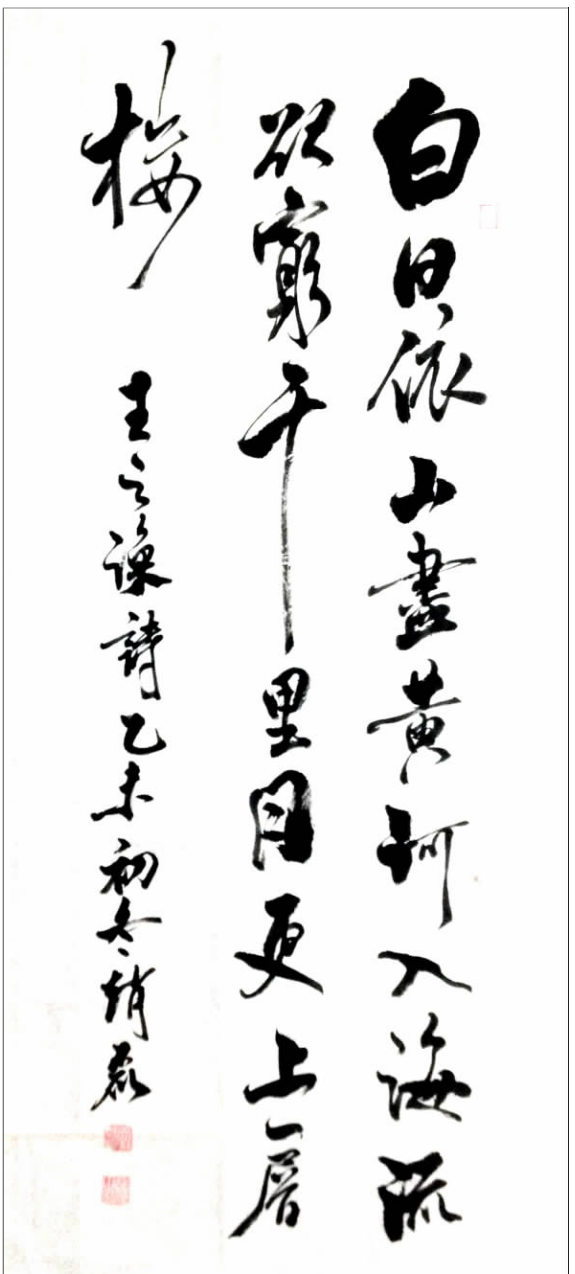 白日依山盡黄河入海流
欲窮千里目更上一層
樓
王之渙詩乙未初冬趙磊